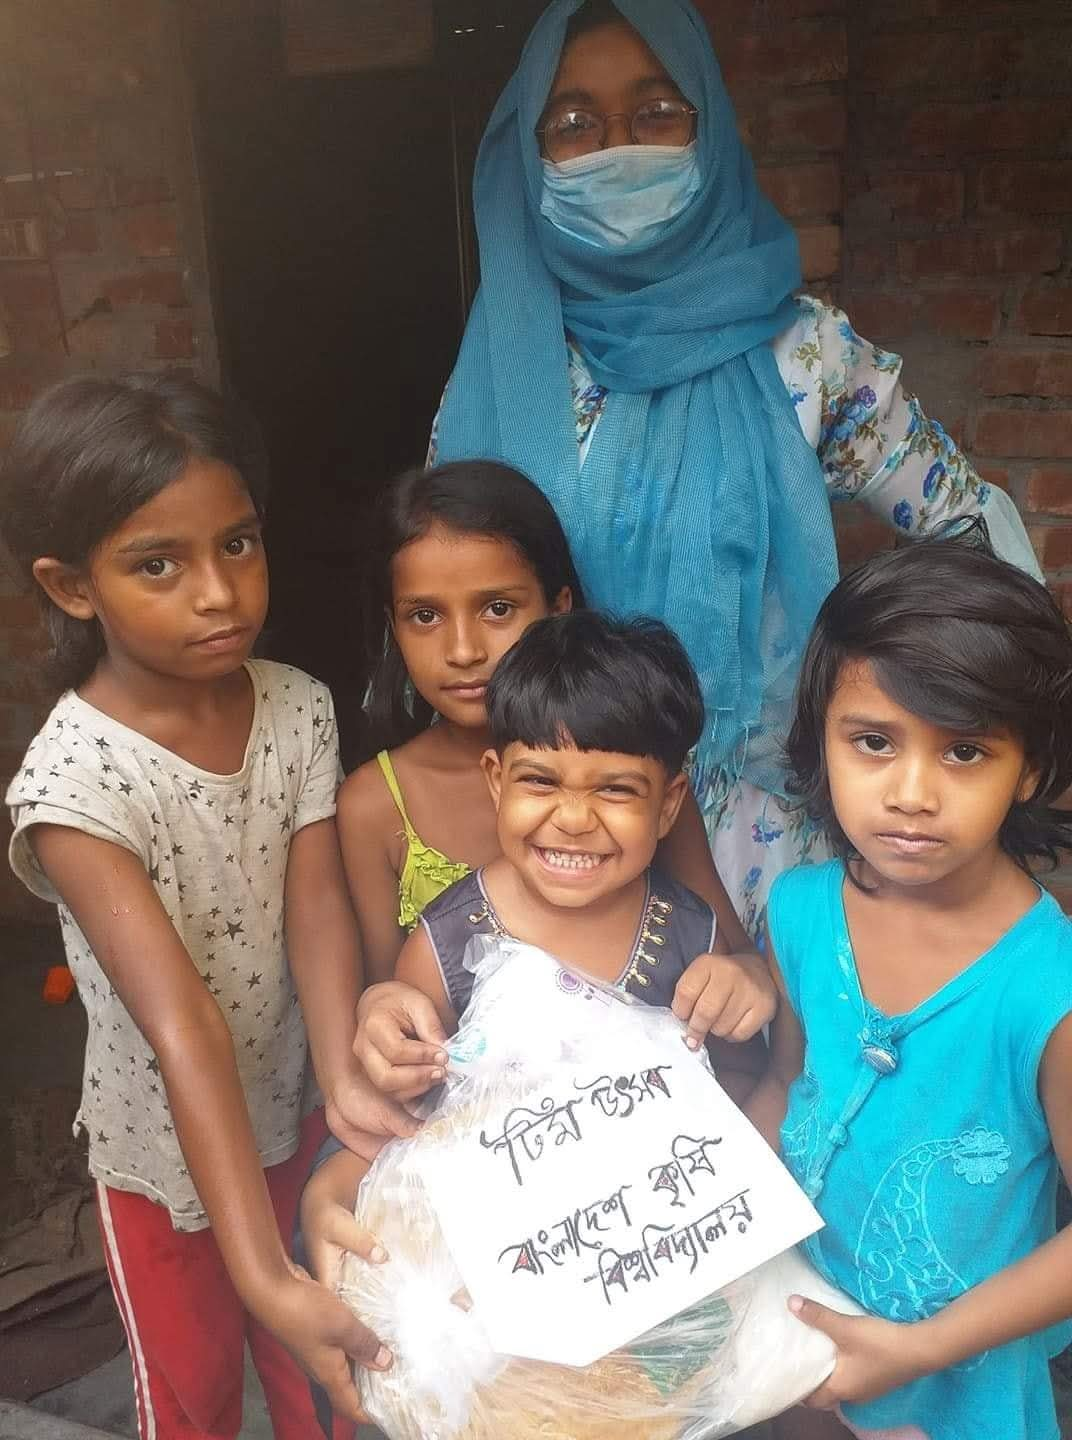 টিম উৎসব
বাংলাদেশ কৃষি
বিশ্ববিদ্যালয়